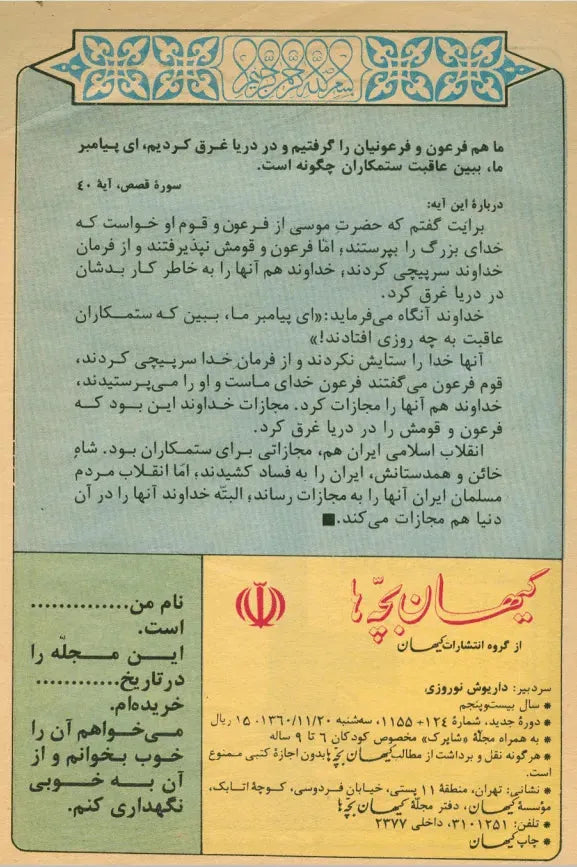 بسم الله الرحمن الرحیم
ما هم فرعون و فرعونیان را گرفتیم و در دریا غرق کردیم، ای پیامبر
ما، ببین عاقبت ستمکاران چگونه است.
سورهٔ قصص، آیهٔ ۴۰
دربارهٔ این آیه:
برایت گفتم که حضرتِ موسی از فرعون و قوم او خواست که
خدای بزرگ را بپرستند؛ امّا فرعون و قومش نپذیرفتند و از فرمان
خداوند سرپیچی کردند؛ خداوند هم آنها را به خاطر کار بدشان
در دریا غرق کرد.
خداوند آنگاه می‌فرماید: «ای پیامبر ما، ببین که ستمکاران
عاقبت به چه روزی افتادند!»
آنها خدا را ستایش نکردند و از فرمانِ خدا سرپیچی کردند،
قوم فرعون می‌گفتند فرعون خدای ماست و او را می‌پرستیدند،
خداوند هم آنها را مجازات کرد. مجازات خداوند این بود که
فرعون و قومش را در دریا غرق کرد.
انقلاب اسلامی ایران هم، مجازاتی برای ستمکاران بود. شاهِ
خائن و همدستانش، ایران را به فساد کشیدند؛ امّا انقلاب مردم
مسلمان ایران آنها را به مجازات رساند؛ البتّه خداوند آنها را در آن
دنیا هم مجازات می‌کند. ■
کیهان بچّه‌ها
از گروه انتشارات کیهان
سردبیر: داریوش نوروزی
* سال بیست‌وپنجم
* دورهٔ جدید، شمارهٔ ۱۲۴ + ۱۱۵۵، سه‌شنبه ۱۳۶۰/۱۱/۲۰، ۱۵ ریال
* به همراه مجلّهٔ «شاپرک» مخصوص کودکان ۶ تا ۹ ساله
* هرگونه نقل و برداشت از مطالب کیهان بچّه‌ها بدون اجازهٔ کتبی ممنوع
است.
* نشانی: تهران، منطقهٔ ۱۱ پستی، خیابان فردوسی، کوچهٔ اتابک،
مؤسسهٔ کیهان، دفتر مجلّهٔ کیهان بچّه‌ها
* تلفن: ۳۱۰۱۲۵۱، داخلی ۲۳۷۷
* چاپ کیهان
نام من..............
است.
این مجلّه را
در تاریخ............
خریده‌ام.
می‌خواهم آن را
خوب بخوانم و از
آن به خوبی
نگهداری کنم.